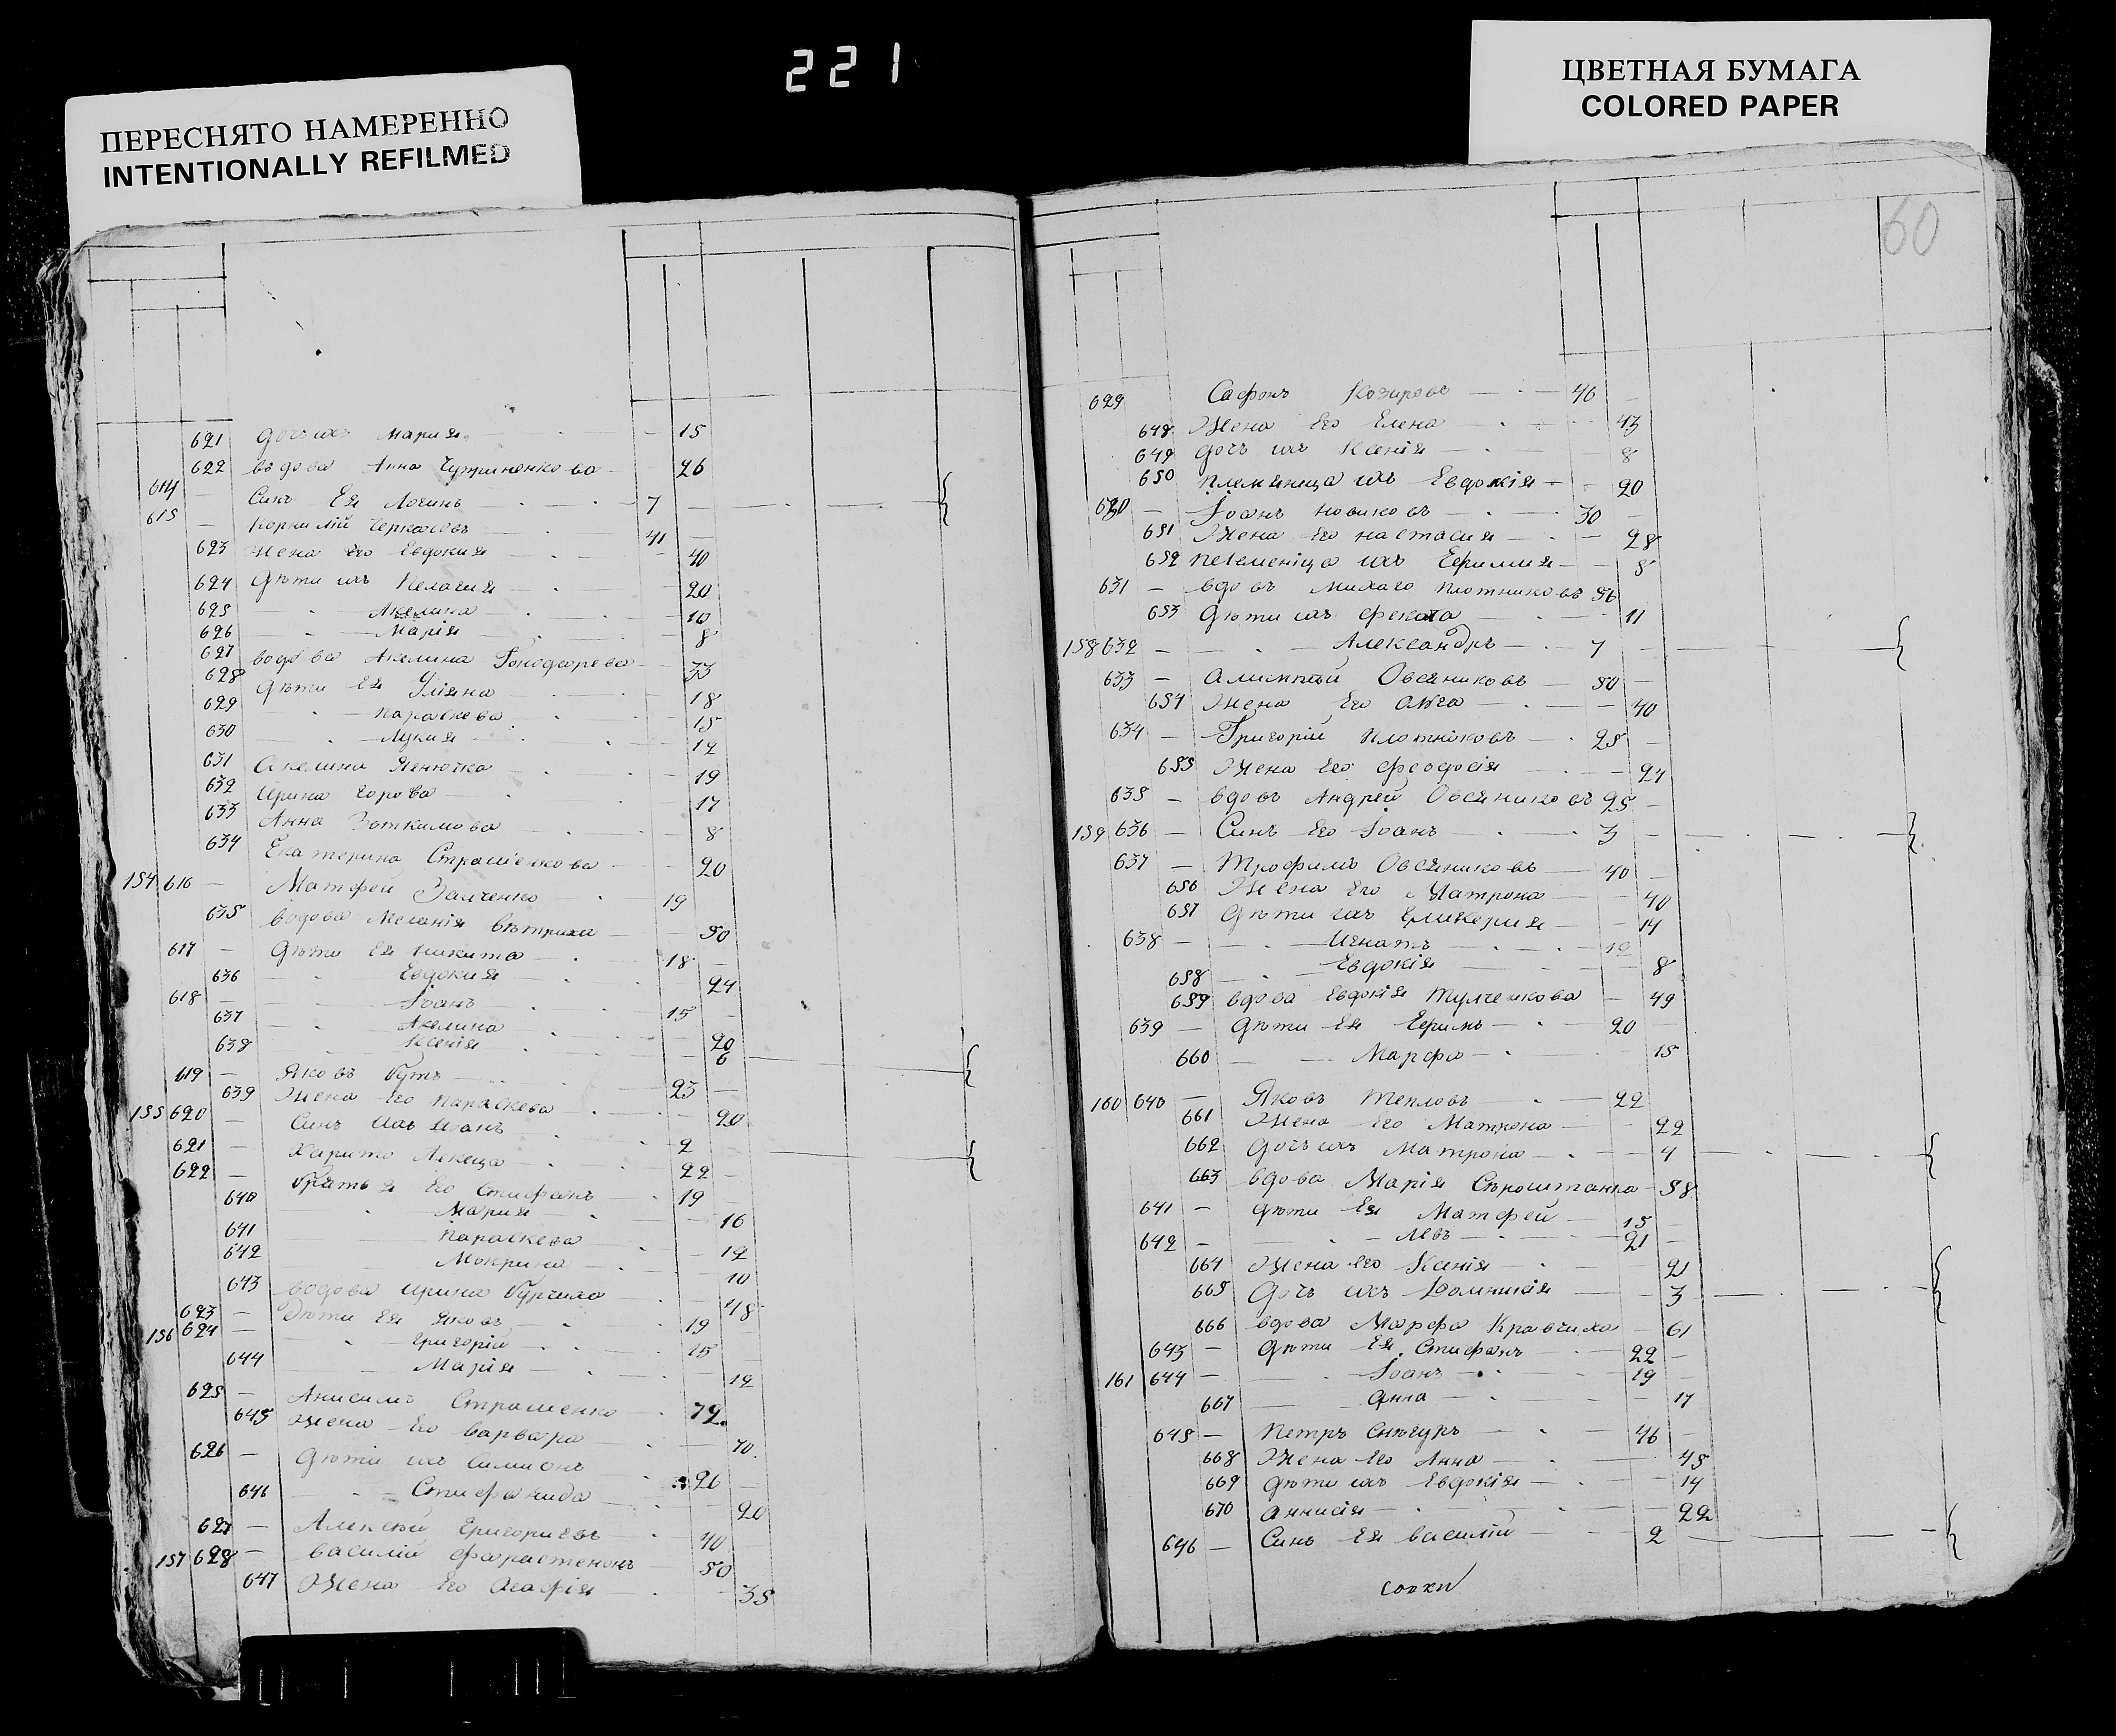 221
ПЕРЕСНЯТО НАМЕРЕННО
INTENTIONALLY REFILMED
ЦВЕТНАЯ БУМАГА
COLORED PAPER
621 дочь ихъ Мария 15
622 вдова Анна 26
614 Синъ Ея Логинъ 7
615 Корнилій Черкасовъ 41
623 Жена Его Евдокия 40
624 Дѣти ихъ Пелагия 20
625 Акелина 10
626 Марія 8
627 водова Акелина 33
628 Дѣти Ея Уліяна 18
629 Параскева 15
630 Лукия 12
631 Акелина 19
632 Ирина 17
633 Анна 8
634 Екатерина 20
154 616 Матфей Заиченко 19
635 водова Меланія 50
617 Дѣти Ея Никита 18
636 Евдокия 24
618 Іоанъ 15
637 Акелина 20
638 Ксенія 6
619 Яковъ 23
639 Жена Его Параскева 20
155 620 Синъ Ихъ Иоанъ 2
621 Харито 22
622 Братья Его Стифанъ 19
640 Мария 16
641 Параскева 12
642 Мокрина 10
643 водова Ирина 48
623 Дѣти Ея Яковъ 19
156 624 Григорій 15
644 Марія 12
625 Анисимъ Страшенко 72
645 Жена Его Варвара 70
626 Дѣти ихъ Симионъ 26
646 Стифанида 20
627 Алексѣй Григориевъ 40
157 628 Василій 50
647 Жена Его Агафія 35
60
629 Сафонъ Козировъ 46
648 Жена Его Елена 43
649 дочь ихъ Ксенія 8
650 племяница ихъ Евдокія 20
630 Іоанъ Новиковъ 30
651 Жена Его Настасия 28
652 ихъ 8
631 вдовъ Плотниковъ 56
653 Дѣти ихъ Фекла 11
158 632 Александръ 7
633 Алимпій Овсяниковъ 50
654 Жена Его Олга 40
634 Григорій Плотниковъ 25
655 Жена Его Феодосія 24
635 вдовъ Андрей Овсяниковъ 25
159 636 Синъ Его Іоанъ 3
637 Трофимъ Овсяниковъ 40
656 Жена Его Матрона 40
657 Дѣти ихъ Гликерия 14
638 Игнатъ 12
658 Евдокія 8
659 вдова Евдокія Тулченкова 49
639 Дѣти Ея 20
660 Марфа 15
160 640 Яковъ Тепловъ 22
661 Жена Его Матрона 22
662 дочь ихъ Матрона 4
663 вдова Марія 58
641 Дѣти Ея Матфей 15
642 Левъ 21
664 Жена Его Ксенія 21
665 Дочь ихъ Домникія 3
666 вдова Марфа Кравчиха 61
643 Дѣти Ея Стифанъ 22
161 644 Іоанъ 19
667 Анна 17
645 Петръ Снѣгуръ 46
668 Жена Его Анна 45
669 Дѣти ихъ Евдокія 14
670 Аннисія 22
646 Синъ Ея Василій 2